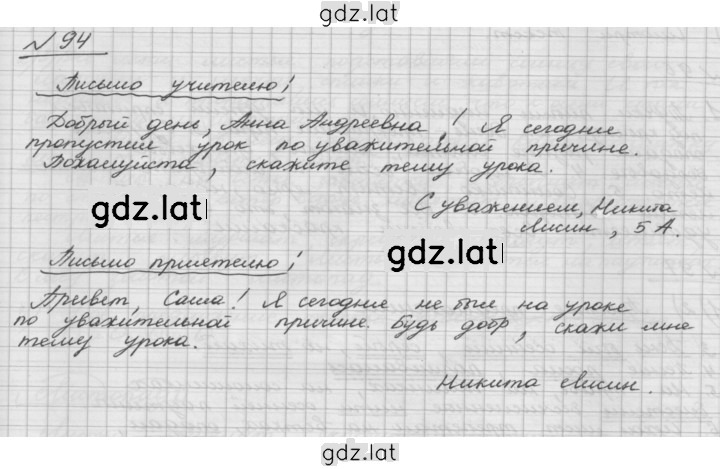 gdz.lat
№ 94
Письмо учителю!
Добрый день, Анна Андреевна! Я сегодня
пропустил урок по уважительной причине.
Пожалуйста, скажите тему урока.
gdz.lat
С уважением, Никита
Лисин, 5 А.
gdz.lat
Письмо приятелю!
Привет, Саша! Я сегодня не был на уроке
по уважительной причине. Будь добр, скажи мне
тему урока.
Никита Лисин.
gdz.lat